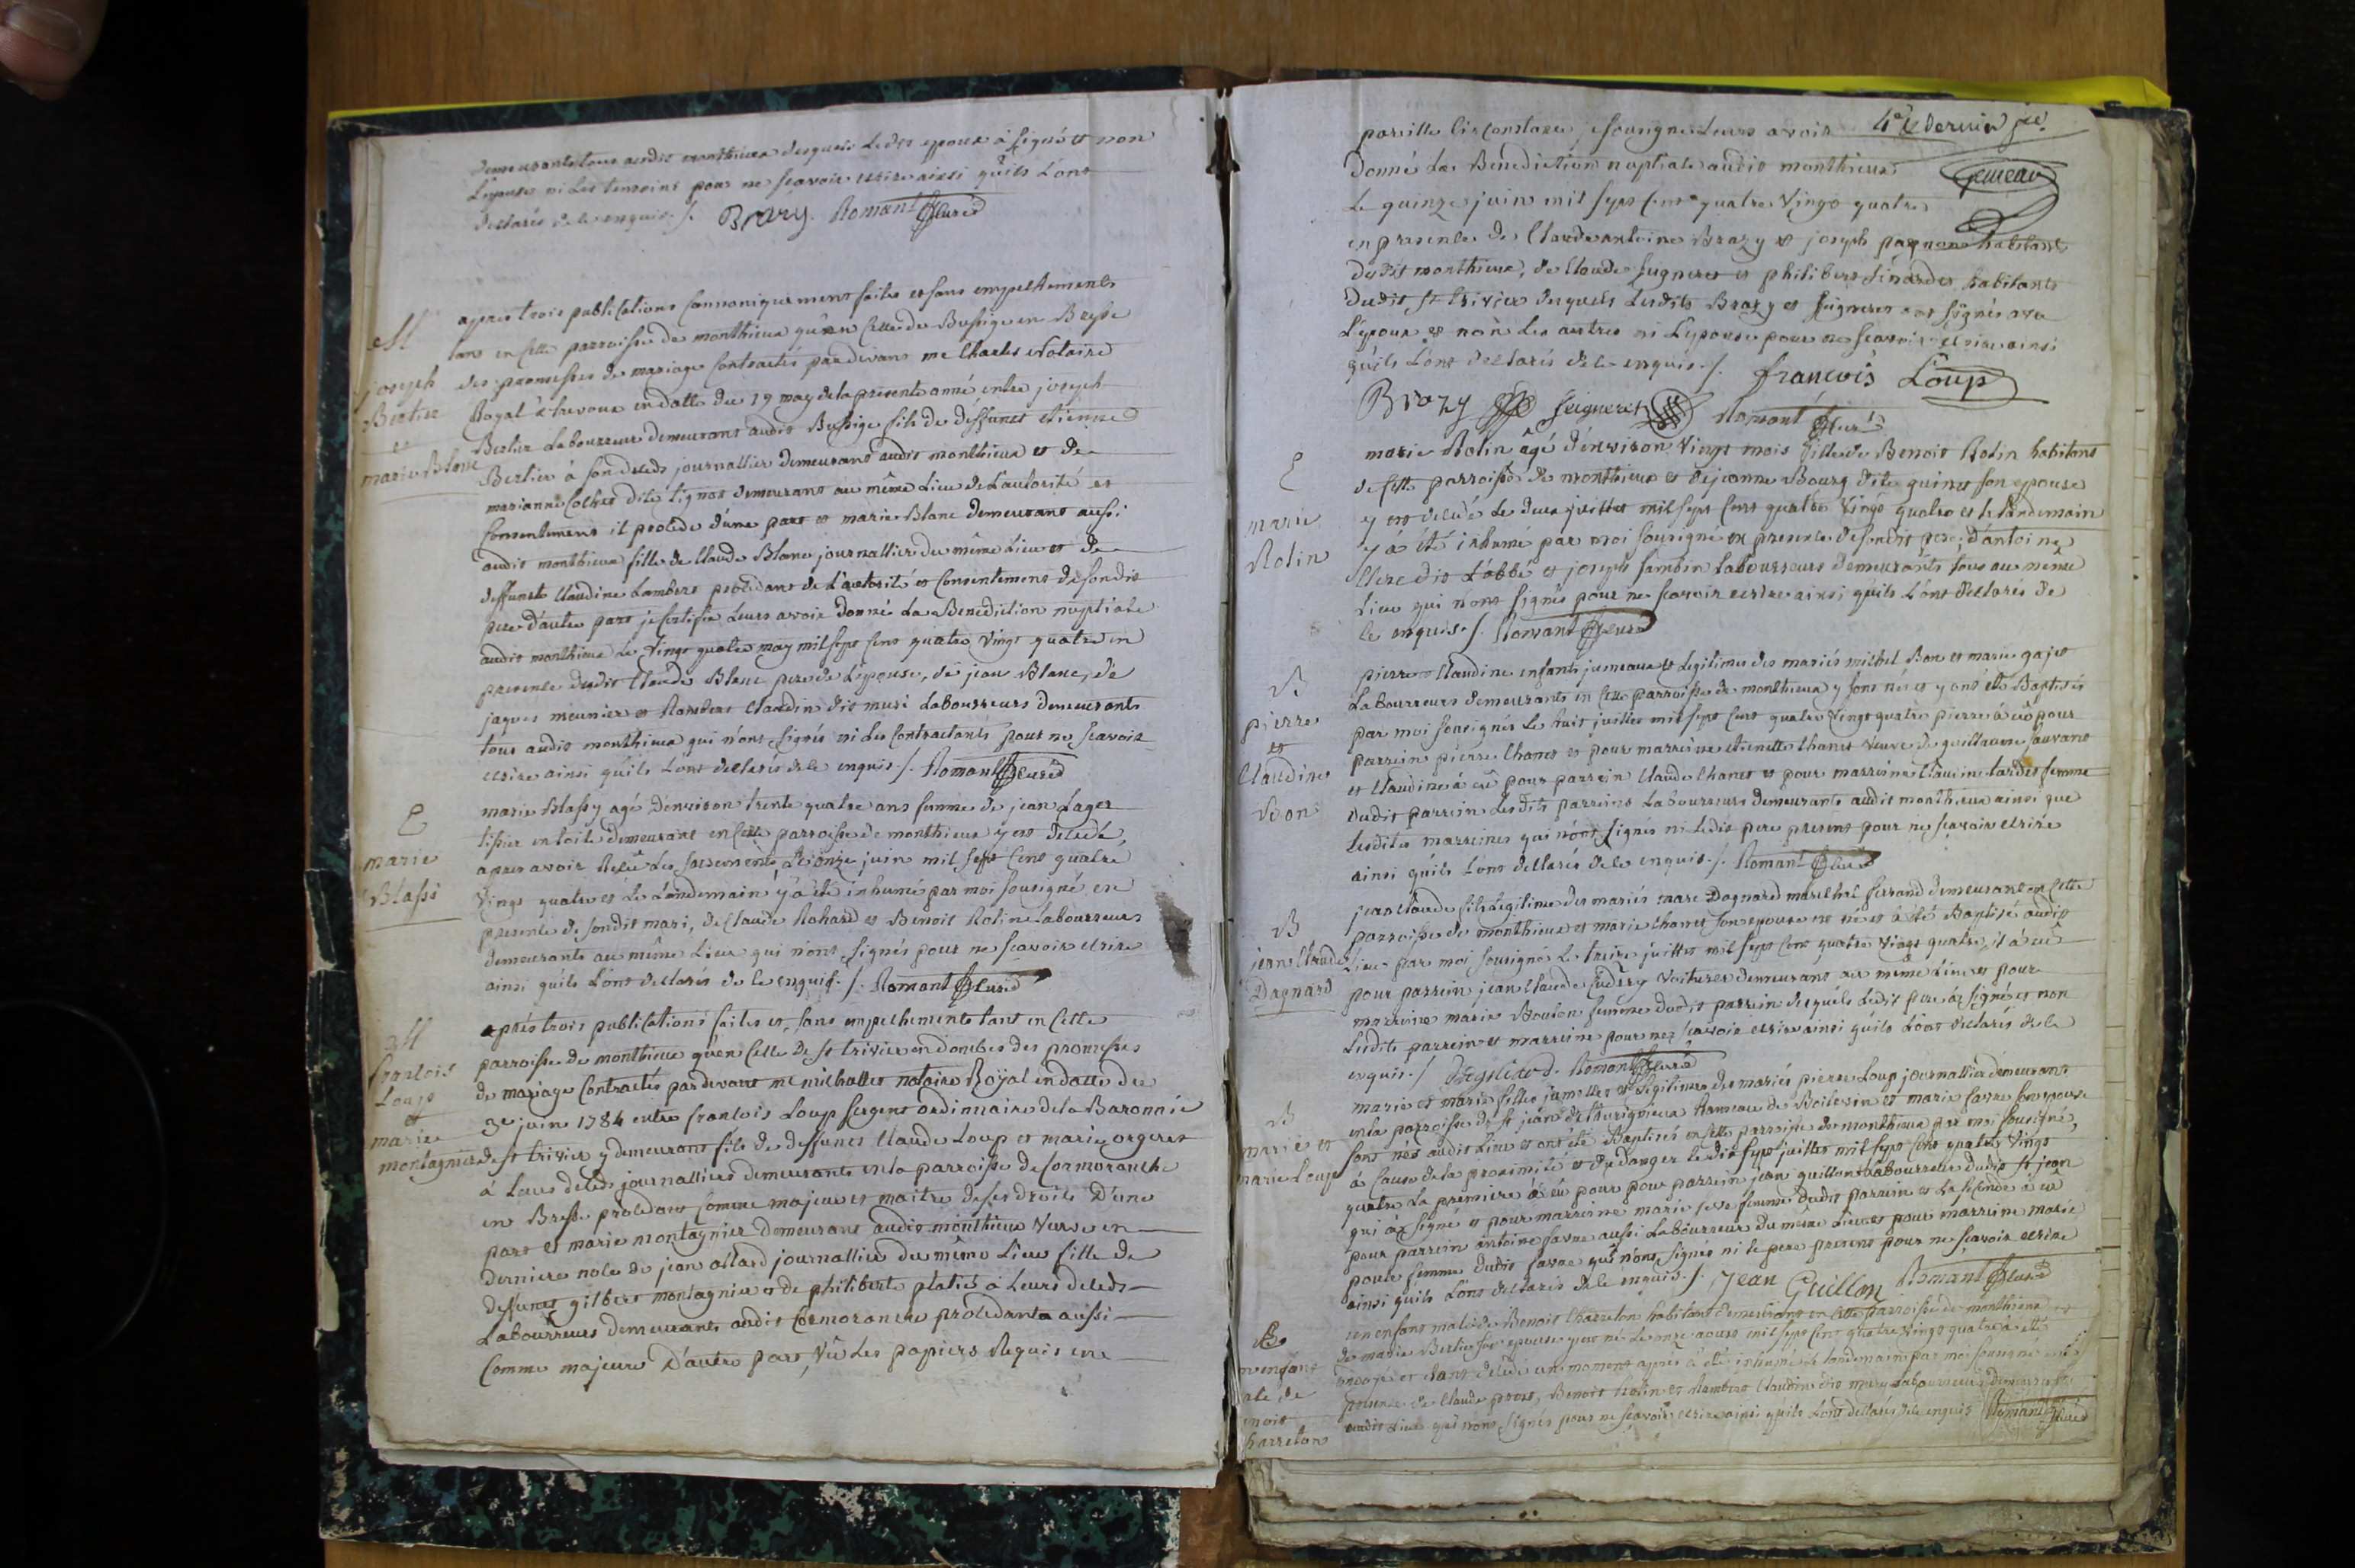 demeurants tous audit monthieux desquels ledit epoux à signé et non
L'epouse ni les temoins pour ne scavoir ecrire ainsi qu'ils L'ont
declarés de ce enquis ./. Brazy. Romant Curé
M
joseph
Bertier
et
marie Blanc
apres trois publications cannoniquement faites et sans empechements
tant en cette parroisse de monthieux qu'en celle de Bussige en Bresse
des promesses de mariage contractés pardevant me Charles Notaire
Royal à trevoux en datte du 19 may de la presente anné entre joseph
Bertier Laboureur demeurant audit Bussige fils de deffunct etienne
Bertier à son deceds journallier demeurant audit monthieux et de
marianne Cochet dite tignat demeurant au même Lieu de L'autorité et
consentement il procede d'une part et marie Blanc demeurant aussi
audit monthieux fille de Claude Blanc journallier du même Lieu et de
deffuncte Claudine Lambert procedant de L'autorité et consentement de sondit
pere d'autre part je certifie Leurs avoir donné La Benediction nuptiale
audit monthieux Le vingt quatre may mil sept cent quatre vingt quatre en
presence dudit Claude Blanc pere de L'epouse, de jean Blanc, de
jaques meunier et Rambert Claudin dit muri Labourreurs demeurants
tous audit monthieux qui n'ont signés ni les contractants pour ne scavoir
ecrire ainsi qu'ils L'ont declarés de ce enquis ./. Romant Curé
E
marie
Blassi
marie Blassy agé d'environ trente quatre ans femme de jean Lager
tissier en toile demeurant en cette parroisse de monthieux y est decedé,
apres avoir Recû Les sacrements Le onze juin mil sept cent quatre
vingt quatre et Le Landemain y à été inhumé par moi sousigné en
presence de sondit mari, de Claude Rohard et Benoit Rolin Labourreurs
demeurants au même Lieu qui n'ont signés pour ne scavoir ecrire
ainsi qu'ils L'ont declarés de ce enquis ./. Romant Curé
M
francois
Loup
et
marie
montagnier
après trois publications faites et sans empechements tant en cette
parroisse de monthieux qu'en celle de st trivier en dombes des promesses
de mariage contractés pardevant me michallet notaire Royal en datte du
3e juin 1784 entre francois Loup sergent ordinnaire de la Baronnie
de st trivier y demeurant fils de deffunct Claude Loup et marie orgeret
à Leurs deceds journalliers demeurants en la parroisse de Cormoranche
en Bresse procedant comme majeur et maitre de ses droits D'une
part et marie montagnier demeurant audit monthieux veuve en
derniere noce de jean allard journallier du même Lieu fille de
deffunct gilbert montagnier et de philiberte platied à Leurs deceds
Labourreurs demeurants audit Cormoranche procedante aussi
comme majeure D'autre part, vû Les papiers Requis en
pareille circonstance je sousigné Leurs avoir 4e et dernier fe
donné La Benediction nuptiale audit monthieux
Le quinze juin mil sept cent quatre vingt quatre
en presence de Claude antoine Brazy et joseph pagnon habitants
dudit monthieux, de Claude seigneret et philibert sinardet habitants
dudit st trivier desquels Lesdits Brazy et seigneret ont signés avec
L'epoux et non Les autres ni L'epouse pour ne scavoir ecrire ainsi
qu'ils L'ont declarés de ce enquis ./. francois Loup
Brazy seigneret Romant Curé
E
marie
Rolin
marie Rolin âgé d'environ vingt mois fille de Benoit Rolin habitant
de cette parroisse de monthieux et de jeanne Bourg dite guinet son epouse
y est decedé Le deux juillet mil sept cent quatre vingt quatre et le Landemain
y à été inhumé par moi sousigné en presence de sondit pere, d'antoine
Clerc dit L'abbé et joseph Jambin Labourreurs demeurants tous au même
Lieu qui n'ont signés pour ne scavoir ecrire ainsi qu'ils L'ont declarés de
ce enquis ./. Romant Curé
B
pierre
et
Claudine
Bon
pierre et Claudine enfants jumeaux et Legitimes des mariés michel Bon et marie gajet
Labourreurs demeurants en cette parroisse de monthieux y sont nés et y ont été Baptisés
par moi sousigné Le huit juillet mil sept cent quatre vingt quatre pierre à eû pour
parrein pierre Chanet et pour marreine etiennette Chanet veuve de guillaume sauvant
et Claudine à eû pour parrein Claude Chanet et pour marreine Claudine tardet femme
dudit parrein Lesdits parreins Labourreurs demeurants audit monthieux ainsi que
Lesdites marreines qui n'ont signés ni Ledit pere present pour ne scavoir ecrire
ainsi qu'ils L'ont declarés de ce enquis ./. Romant Curé
B
jean Claude
Dagnard
jean Claude fils Legitime des mariés marc Dagnard marechal ferrand demeurant en cette
parroisse de monthieux et marie Chanet son epouse est né et à été Baptisé audit
Lieu par moi sousigné Le treize juillet mil sept cent quatre vingt quatre, il à eû
pour parrein jean Claude voiturier demeurant au même Lieu et pour
marreine marie Bouton femme dudit parrein desquels Ledit pere à signé et non
Lesdits parrein et marreine pour ne scavoir ecrire ainsi qu'ils L'ont declarés de ce
enquis ./. Romant Curé
B
marie et
marie Loup
marie et marie filles jumelles et Legitimes des mariés pierre Loup journallier demeurant
en la parroisse de st jean de thurigneux hameau de Boilevin et marie favre son epouse
sont nés audit Lieu et ont été Baptisés en cette parroisse de monthieux par moi sousigné,
à cause de la proximité et du danger le dix sept juillet mil sept cent quatre vingt
quatre La premiere à eû pour pour parrein jean guillon Labourreur dudit st jean
qui à signé et pour marreine marie femme dudit parrein et La seconde à eû
pour parrein antoine favre aussi Labourreur du même Lieu et pour marreine marie
femme dudit favre qui n'ont signés ni le pere present pour ne scavoir ecrire
ainsi qu'ils L'ont declarés de ce enquis ./. Jean Guillon Romant Curé
E
un enfant
male de
Benoit
Charreton
un enfant male de Benoit Charreton habitant demeurant en cette parroisse de monthieux et
de marie Bertier son epouse y est né Le onze aoust mil sept cent quatre vingt quatre à été
ondoyé et étant decedé un moment après à été inhumé le Landemain par moi sousigné en
presence de Claude prost, Benoit Rolin et Rambert Claudin dit mury Labourreurs demeurants
audit Lieu qui n'ont signés pour ne scavoir ecrire ainsi qu'ils L'ont declarés de ce enquis Romant Curé